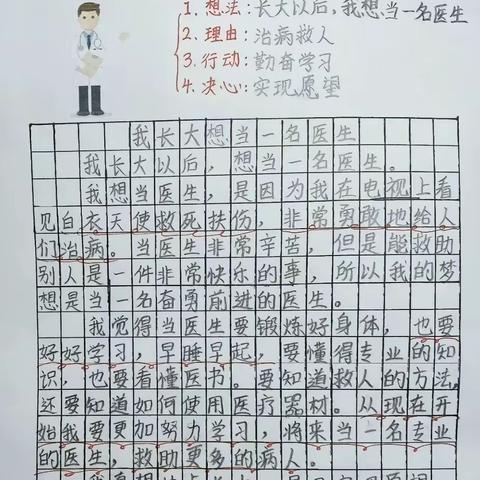 1.想法:长大以后,我想当一名医生
2.理由:治病救人
3.行动:勤奋学习
4.决心:实现愿望
我长大想当一名医生
我长大以后,想当一名医生。
我想当医生,是因为我在电视上看
见白衣天使救死扶伤,非常勇敢地给人
们治病。当医生非常辛苦,但是能救助
别人是一件非常快乐的事,所以我的梦
想是当一名奋勇前进的医生。
我觉得当医生要锻炼好身体,也要
好好学习,早睡早起,要懂得专业的知
识,也要看懂医书。要知道救人的方法。
还要知道如何使用医疗器材。从现在开
始我要更加努力学习,将来当一名专业
的医生,救助更多的病人。